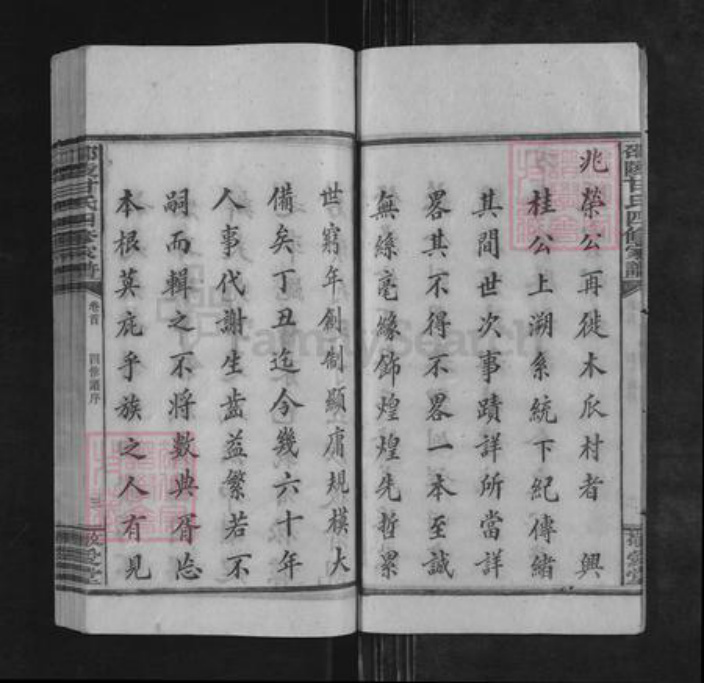 邵陵甘氏四修家譜
兆榮公再徙木瓜村者 興
桂公上溯系統下紀傳緒
其間世次事蹟詳所當詳
畧其不得不畧一本至誠
無絲毫緣飾煌煌先哲累
世窮年創制顯庸規模大
備矣丁丑迄今幾六十年
人事代謝生齒益繁若不
嗣而輯之不將數典胥忘
本根莫庇乎族之人有見
邵陵甘氏四修家譜
卷首
四修譜序
三
敦愛堂
FamilySearch